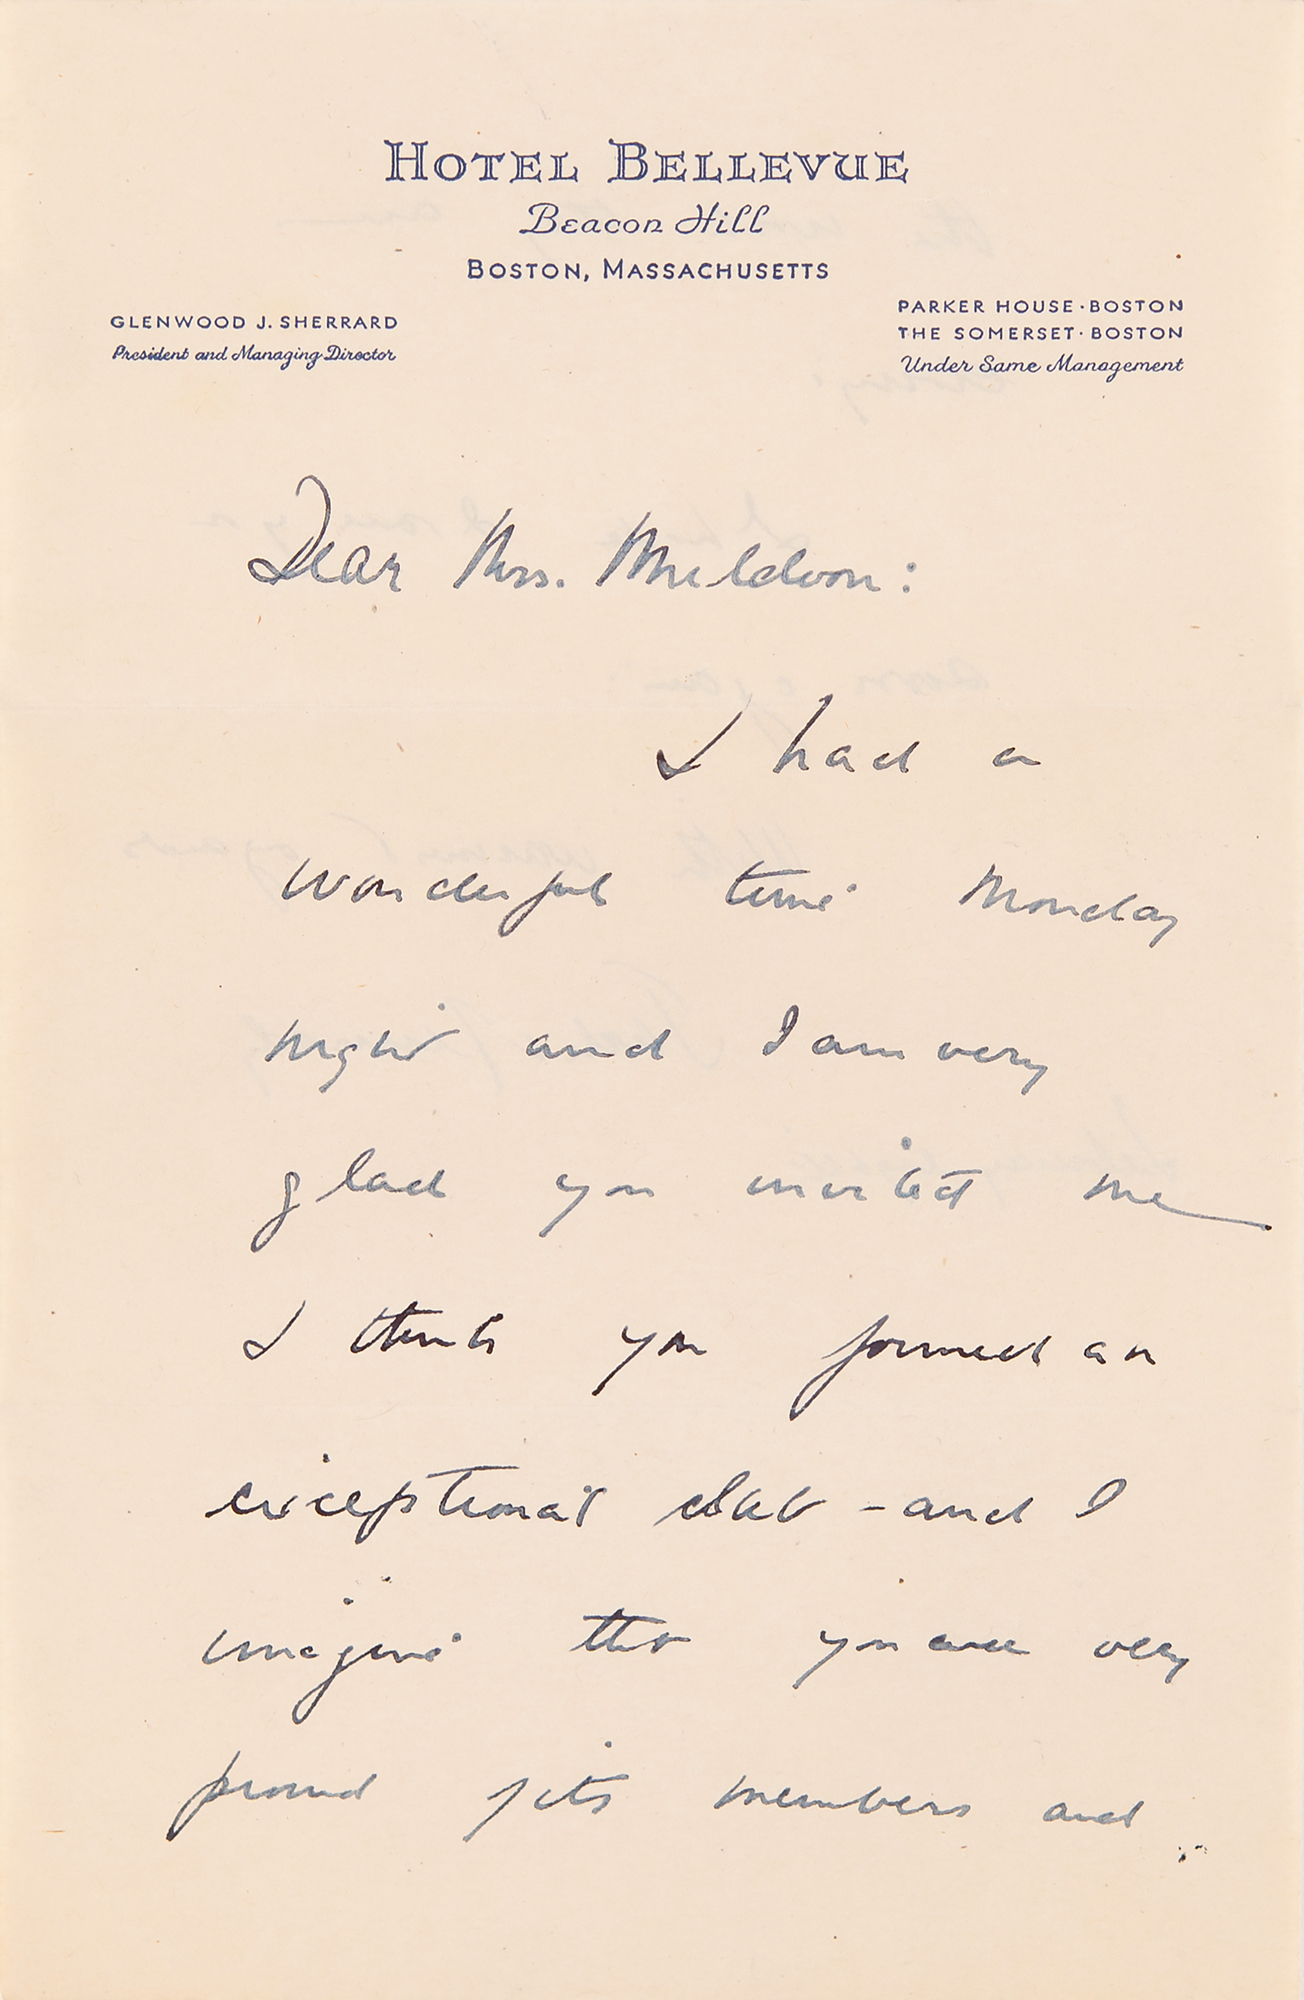 HOTEL BELLEVUE
Beacon Hill
BOSTON, MASSACHUSETTS
GLENWOOD J. SHERRARD
President and Managing Director
PARKER HOUSE · BOSTON
THE SOMERSET · BOSTON
Under Same Management
Dear Mrs. Muldoon:
I had a
wonderful time Monday
night and I am very
glad you invited me
I think you formed an
exceptional club - and I
imagine that you are very
proud of its members and